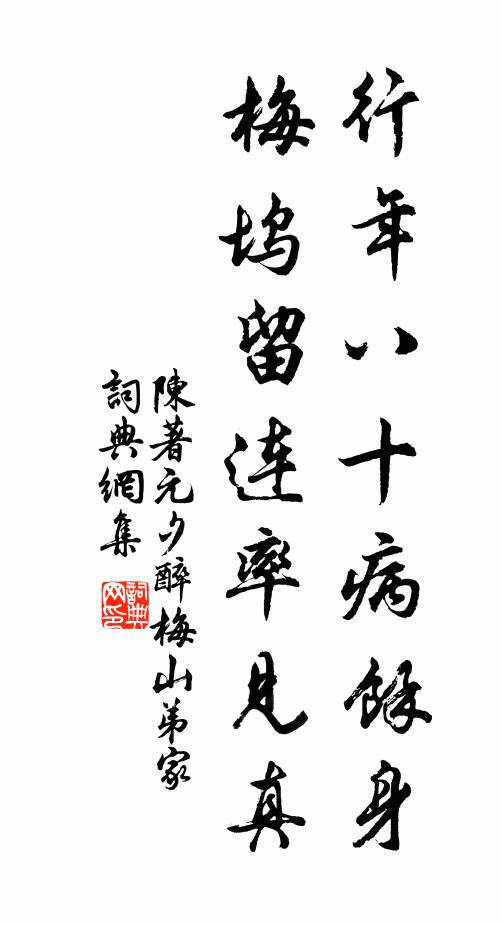 行年八十病餘身
梅塢留连率見真
陳著元夕醉梅山弟家
詞典網集
詞典网印